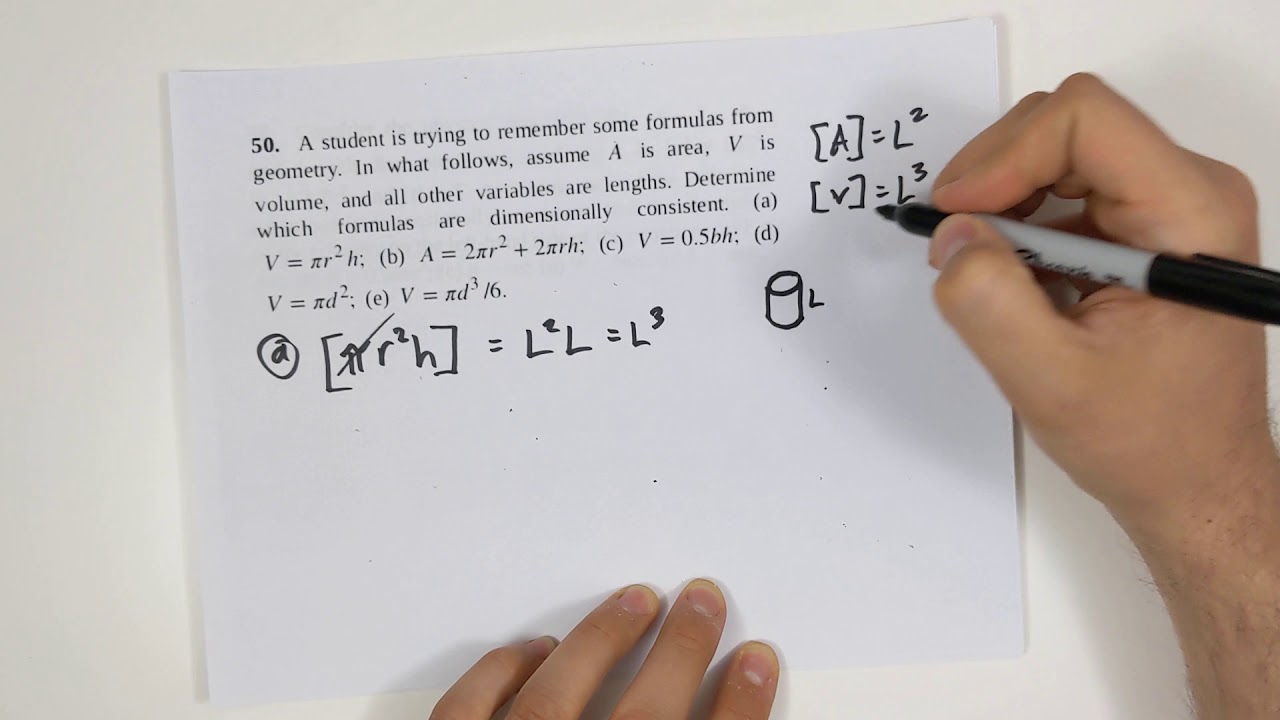 50. A student is trying to remember some formulas from
geometry. In what follows, assume A is area, V is
volume, and all other variables are lengths. Determine
which formulas are dimensionally consistent. (a)
V = πr²h; (b) A = 2πr² + 2πrh; (c) V = 0.5bh; (d)
V = πd²; (e) V = πd³/6.
[A] = L²
[V] = L³
L
(a) [πr²h] = L²L = L³